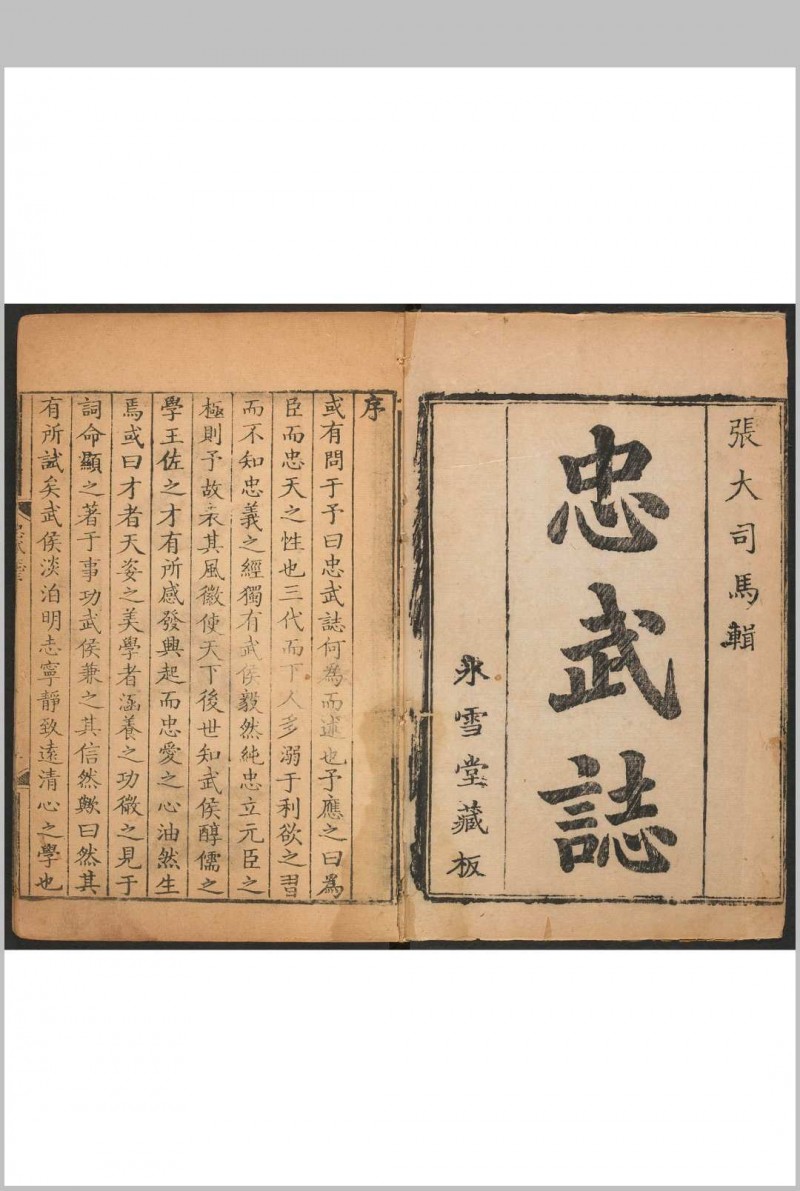 張大司馬輯
忠武誌
氷雪堂藏板
序
或有問于予曰忠武誌何為而述也予應之曰爲
臣而忠天之性也三代而下人多溺于利欲之習
而不知忠義之經獨有武侯毅然純忠立元臣之
極則予故表其風徽使天下後世知武侯醇儒之
學王佐之才有所感發興起而忠愛之心油然生
焉或曰才者天姿之美學者涵養之功微之見于
詞命顯之著于事功武侯兼之其信然歟曰然其
有所試矣武侯淡泊明志寧靜致遠清心之學也